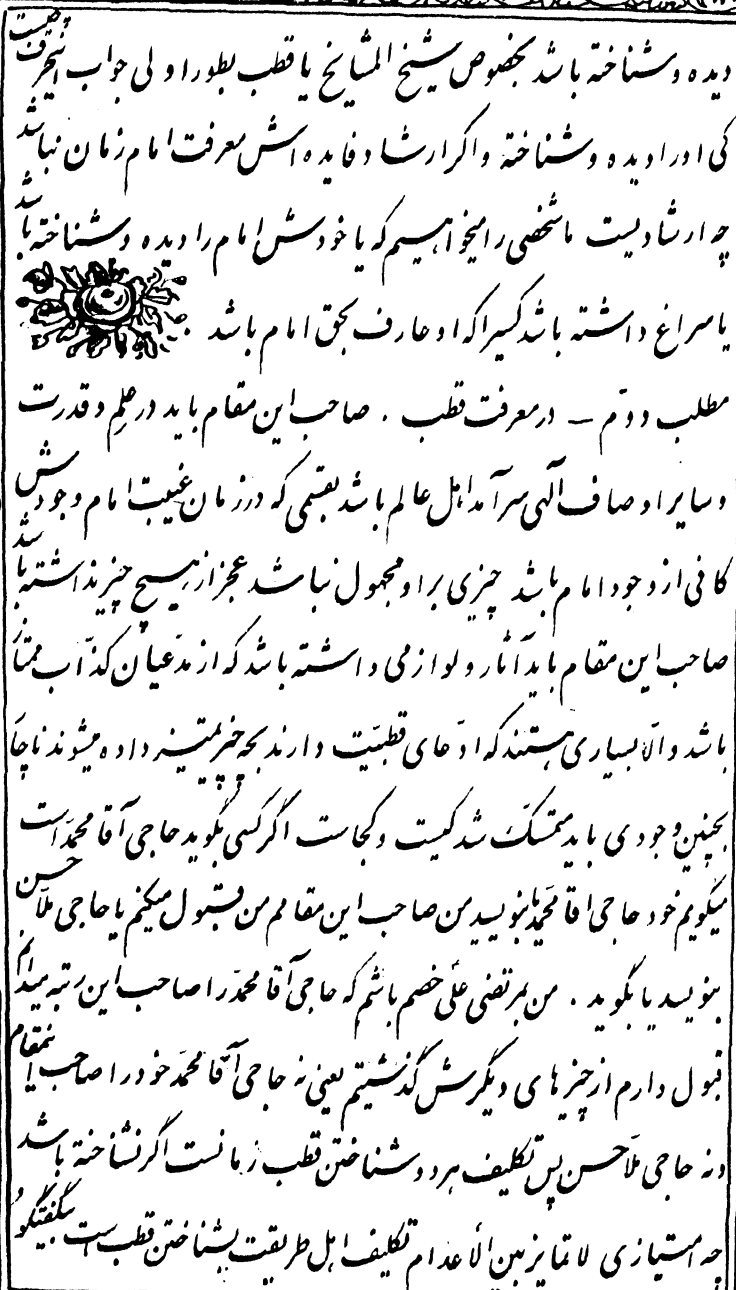 دیده و شناخته باشد بخصوص شیخ المشایخ یا قطب بطور اولی جواب اینحرف چیست
کی او را دیده و شناخته و اگر ارشاد فایده اش معرفت امام زمان نباشد
چه ارشادیست ما شخصی را میخواهیم که یا خودش امام را دیده و شناخته باشد
یا سراغ داشته باشد کسیرا که او عارف بحق امام باشد
مطلب دوّم – در معرفت قطب . صاحب این مقام باید در علم و قدرت
و سایر اوصاف آلهی سرآمد اهل عالم باشد بقسمی که در زمان غیبت امام وجودش
کافی از وجود امام باشد چیزی بر او مجهول نباشد عجز از هیچ چیز نداشته باشد
صاحب این مقام باید آثار و لوازمی داشته باشد که از مدّعیان کذّاب ممتاز
باشد والّا بسیاری هستند که ادّعای قطبیّت دارند بچه چیز تمیز داده میشوند ناچا
بچنین وجودی باید متمسّک شد کیست و کجاست اگر کسی بگوید حاجی آقا محمّد است
میگویم خود حاجی اقا محمّد بنویسد من صاحب این مقامم من قبول میکنم یا حاجی ملّا حسن
بنویسد یا بگوید . من بمرتضی علی خصم باشم که حاجی آقا محمّد را صاحب این رتبه میدانم
قبول دارم از چیزهای دیگرش گذشتیم یعنی نه حاجی آقا محمّد خود را صاحب اینمقام
و نه حاجی ملّا حسن پس تکلیف هر دو شناختن قطب زمانست اگر نشناخته باشد
چه امتیازی لا تمایز بین الأعدام تکلیف اهل طریقت بشناختن قطب است بگفتگو